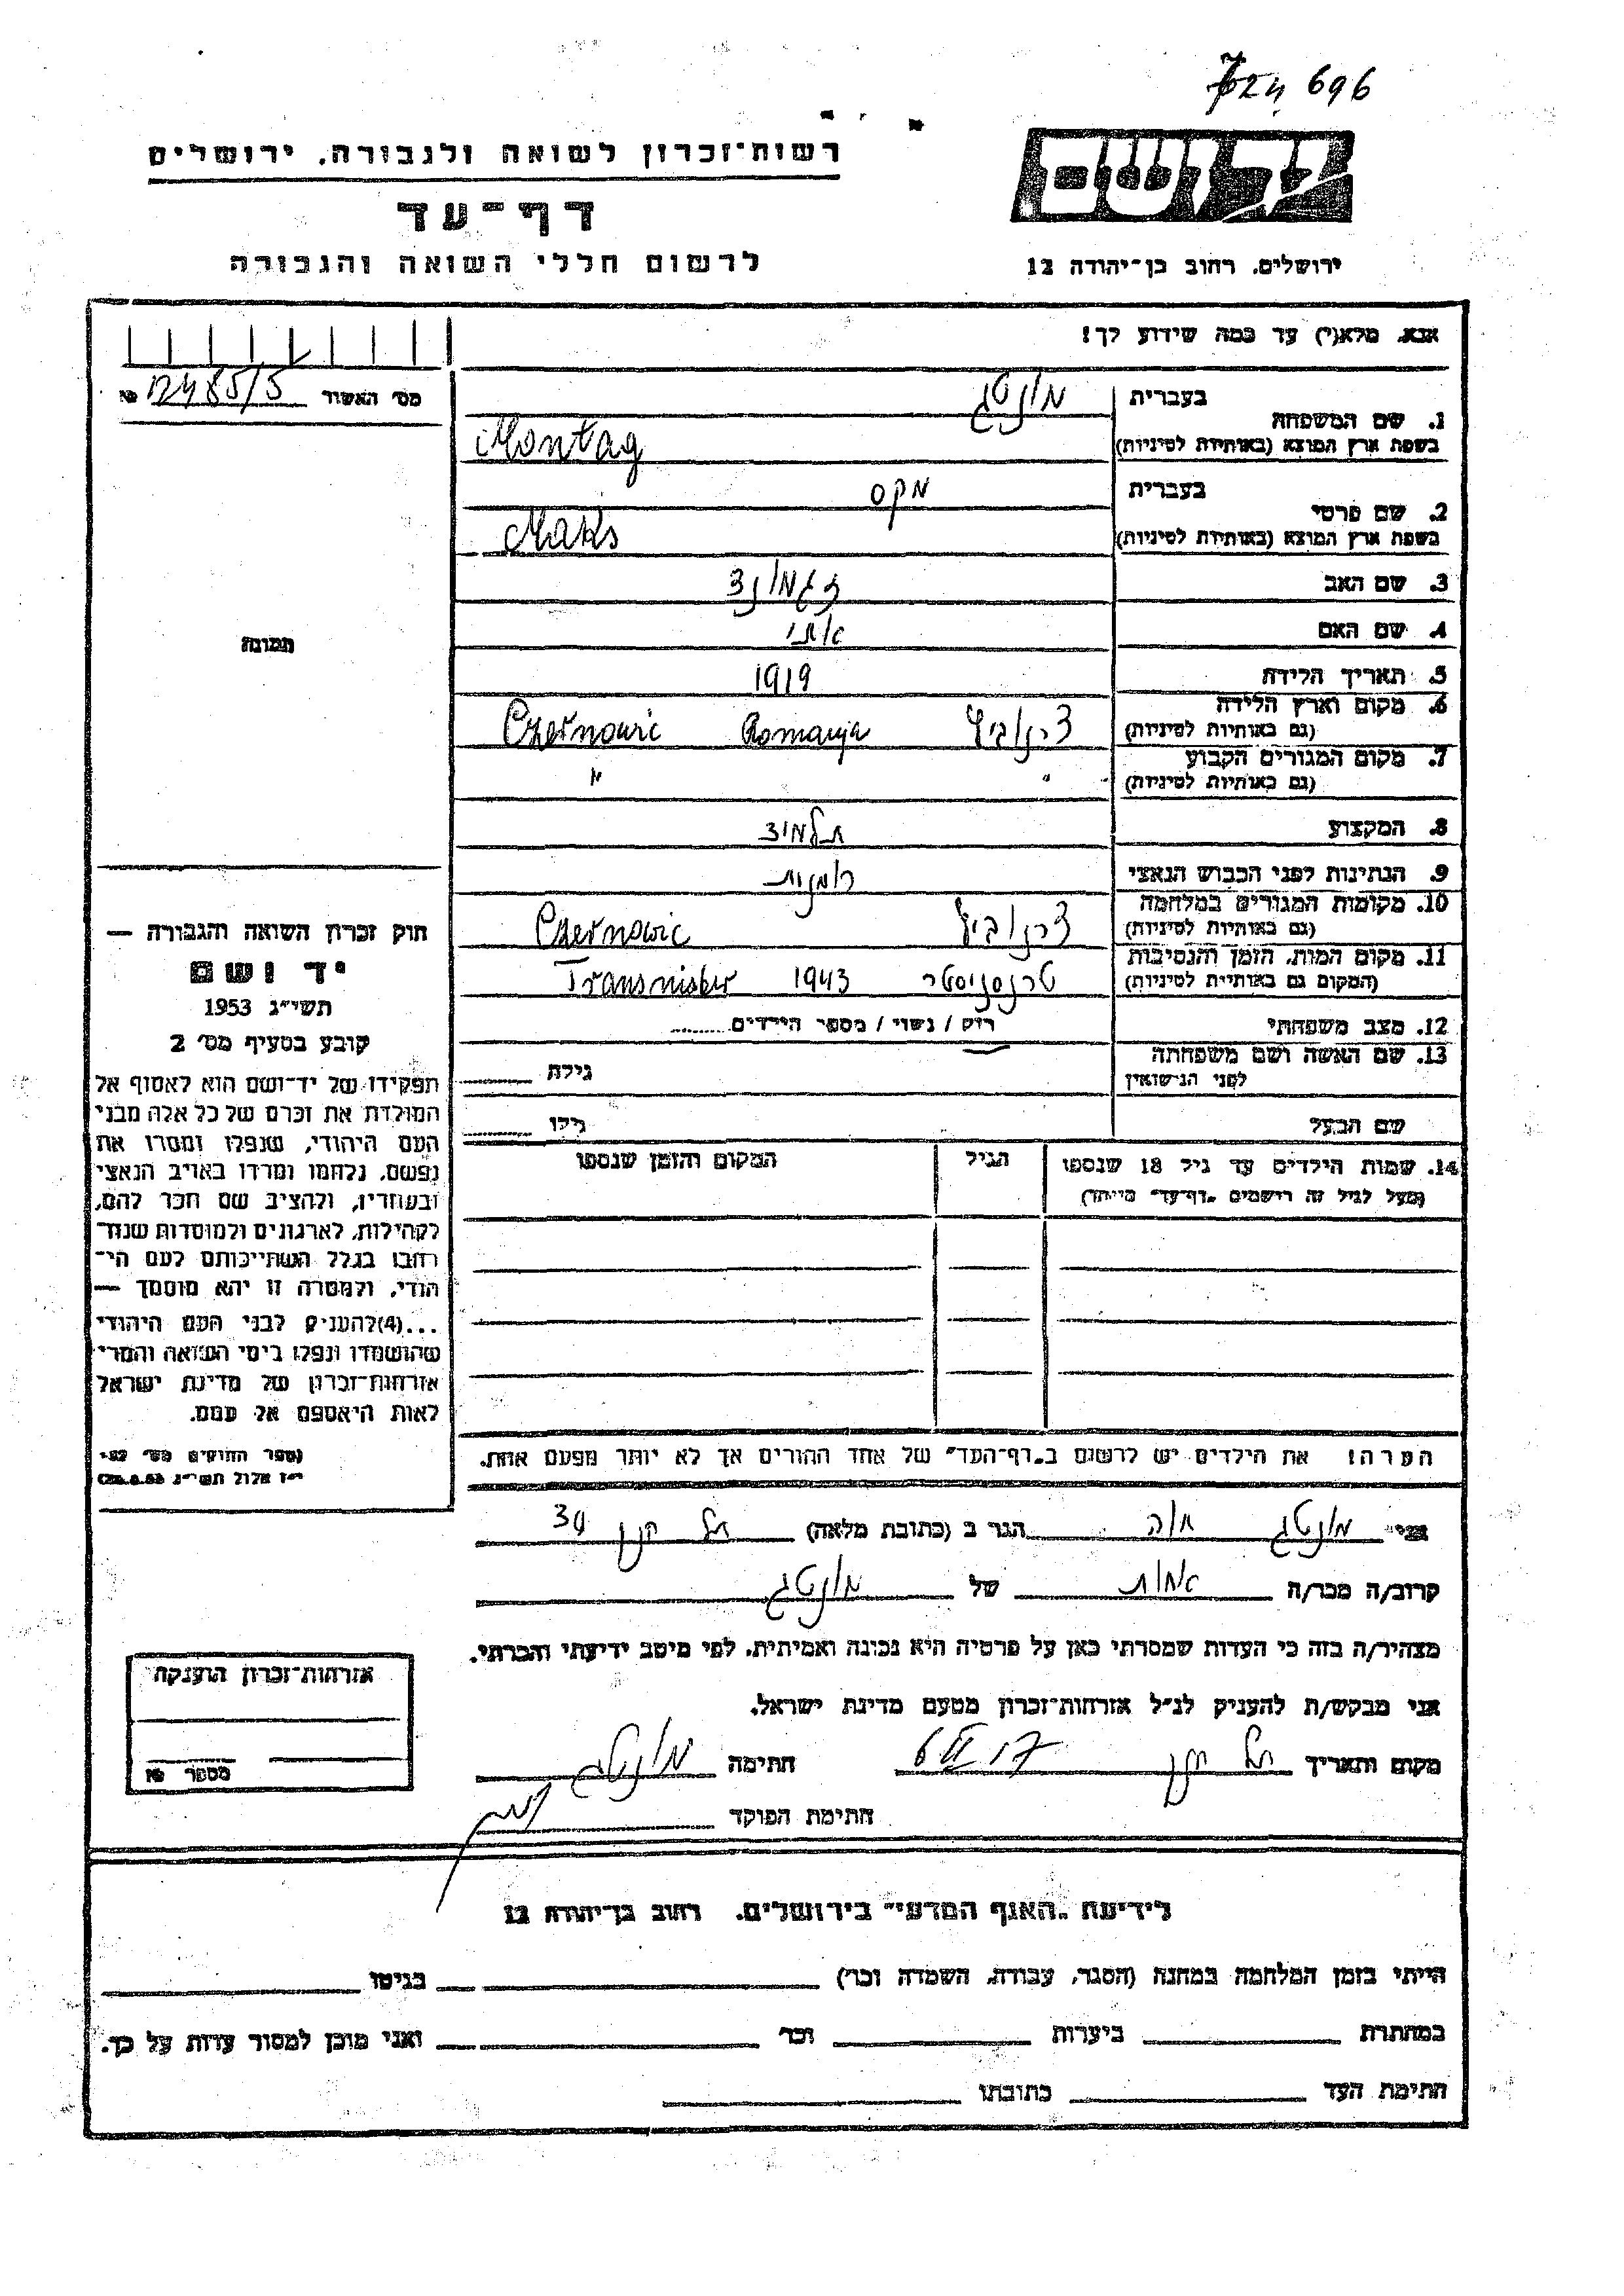 רשות־זכרון לשואה ולגבורה, ירושלים
דף־עד
לרשום חללי השואה והגבורה
696
יד ושם
ירושלים, רחוב בן־יהודה 12
אנא, מלא(י) עד כמה שידוע לך!
מס׳ האשור 12485/5 №
תמונה
1. שם המשפחה
בעברית מונטג
בשפת ארץ המוצא (באותיות לטיניות) Montag
2. שם פרטי
בעברית מקס
בשפת ארץ המוצא (באותיות לטיניות) Maks
3. שם האב זגמונד
4. שם האם
5. תאריך הלידה 1919
6. מקום וארץ הלידה
(גם באותיות לטיניות) צרנוביץ Romanja Czernowic
7. מקום המגורים הקבוע
(גם באותיות לטיניות) " "
8. המקצוע תלמיד
9. הנתינות לפני הכבוש הנאצי רומנית
10. מקומות המגורים במלחמה
(גם באותיות לטיניות) צרנוביץ Czernowic
11. מקום המות, הזמן והנסיבות
(המקום גם באותיות לטיניות) טרנסניסטר 1943 Transnister
12. מצב משפחתי רווק / נשוי / מספר הילדים
13. שם האשה ושם משפחתה
לפני הנישואין גילה
שם הבעל גילו
14. שמות הילדים עד גיל 18 שנספו הגיל המקום והזמן שנספו
(מעל לגיל זה רישמים „דף־עד" מיוחד)
הערה! את הילדים יש לרשום ב„דף־העד" של אחד ההורים אך לא יותר מפעם אחת.
חוק זכרון השואה והגבורה —
יד ושם
תשי״ג 1953
קובע בסעיף מס׳ 2
תפקידו של יד־ושם הוא לאסוף אל
המולדת את זכרם של כל אלה מבני
העם היהודי, שנפלו ומסרו את
נפשם, נלחמו ומרדו באויב הנאצי
ובעוזריו, ולהציב שם וזכר להם,
לקהילות, לארגונים ולמוסדות שנח־
רבו בגלל השתייכותם לעם הי־
הודי, ולמטרה זו יהא מוסמך —
...(4) להעניק לבני העם היהודי
שהושמדו ונפלו בימי השואה והמרי
אזרחות־זכרון של מדינת ישראל
לאות היאספם אל עמם.
(ספר החוקים מס׳ 132,
י״ז אלול תשי״ג 28.8.53)
אני מונטג הגר ב (כתובת מלאה) תל חנן 34
קרוב/ה מכר/ה אחות של מונטג
מצהיר/ה בזה כי העדות שמסרתי כאן על פרטיה היא נכונה ואמיתית, לפי מיטב ידיעתי והכרתי.
אני מבקש/ת להעניק לנ״ל אזרחות־זכרון מטעם מדינת ישראל.
מקום ותאריך תל חנן חתימה מונטג
חתימת הפוקד
אזרחות־זכרון הוענקה
מספר №
לידיעת „האגף המדעי" בירושלים, רחוב בן־יהודה 12
הייתי בזמן המלחמה במחנה (הסגר, עבודה, השמדה וכו׳) בגיטו
במחתרת ביערות וכו׳ ואני מוכן למסור עדות על כך.
חתימת העד כתובתו